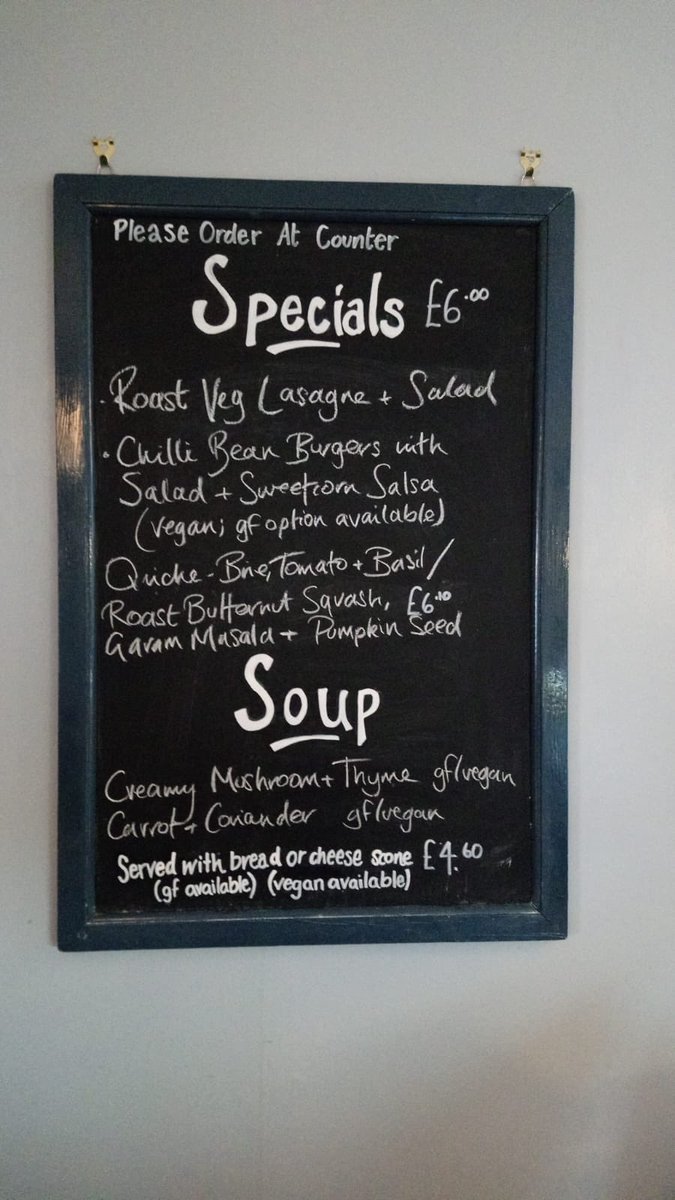 Please Order At Counter
Specials £6.00
· Roast Veg Lasagne + Salad
· Chilli Bean Burgers with
Salad + Sweetcorn Salsa
(vegan; gf option available)
Quiche - Brie, Tomato + Basil /
Roast Butternut Squash, £6.10
Garam Masala + Pumpkin Seed
Soup
Creamy Mushroom + Thyme gf/vegan
Carrot + Coriander gf/vegan
Served with bread or cheese scone £4.60
(gf available) (vegan available)